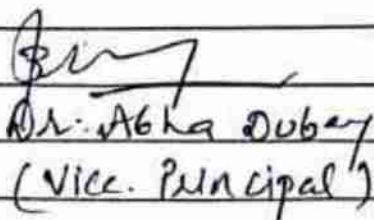 Dr. Abha Dubey
(Vice. Principal)